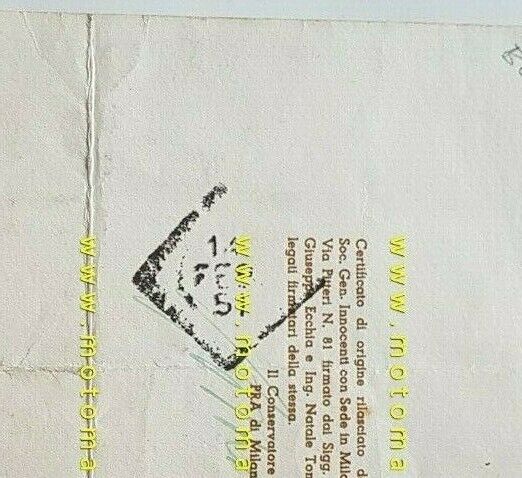 Certificato di origine rilasciato d
Soc. Gen. Innocenti con Sede in Mila
Via Pitteri N. 81 firmato dai Sigg.
Giuseppe Ecchia e Ing. Natale Tom
legali firmatari della stessa.
Il Conservatore
PRA di Milan
www.motoma
www.motoma
www.motoma